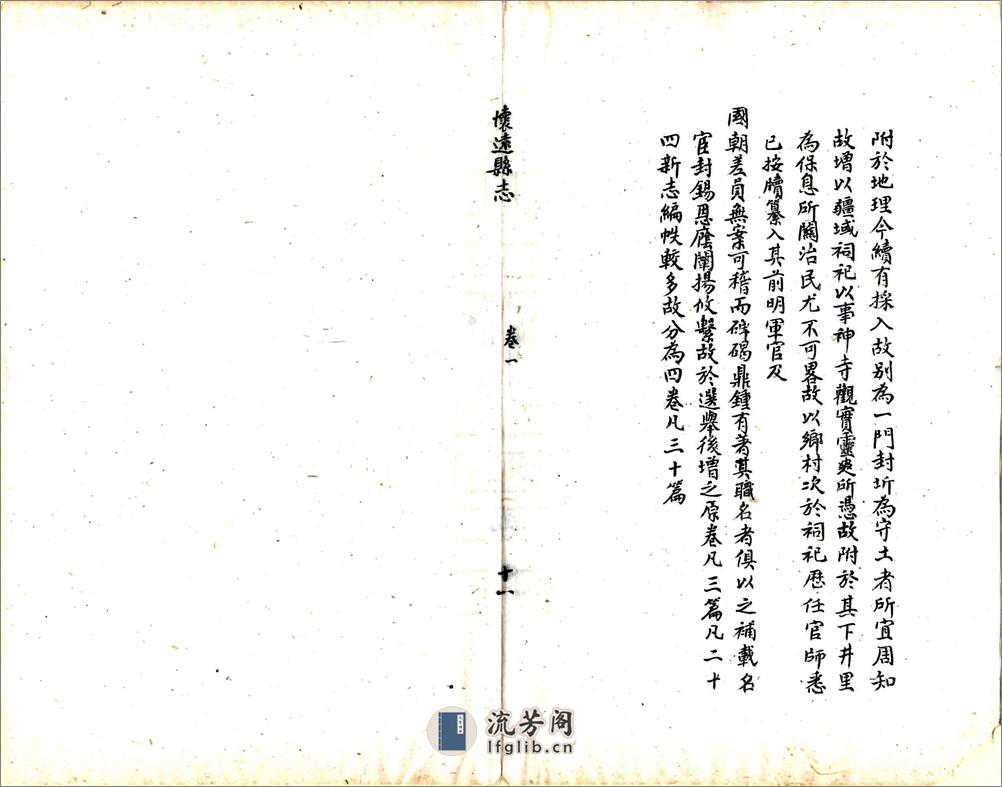 附於地理今續有採入故別為一門封圻為守土者所宜周知
故增以疆域祠祀以事神寺觀實靈爽所憑故附於其下井里
為保息所關治民尤不可畧故以鄉村次於祠祀歷任官師悉
已按牘纂入其前明軍官及
國朝差員無案可稽而碑碣鼎鍾有著其職名者俱以之補載名
宦封錫恩廕闡揚攸繫故於選舉後增之原卷凡三篇凡二十
四新志編帙較多故分為四卷凡三十篇
懷遠縣志
卷一
十一
流芳阁
lfglib.cn